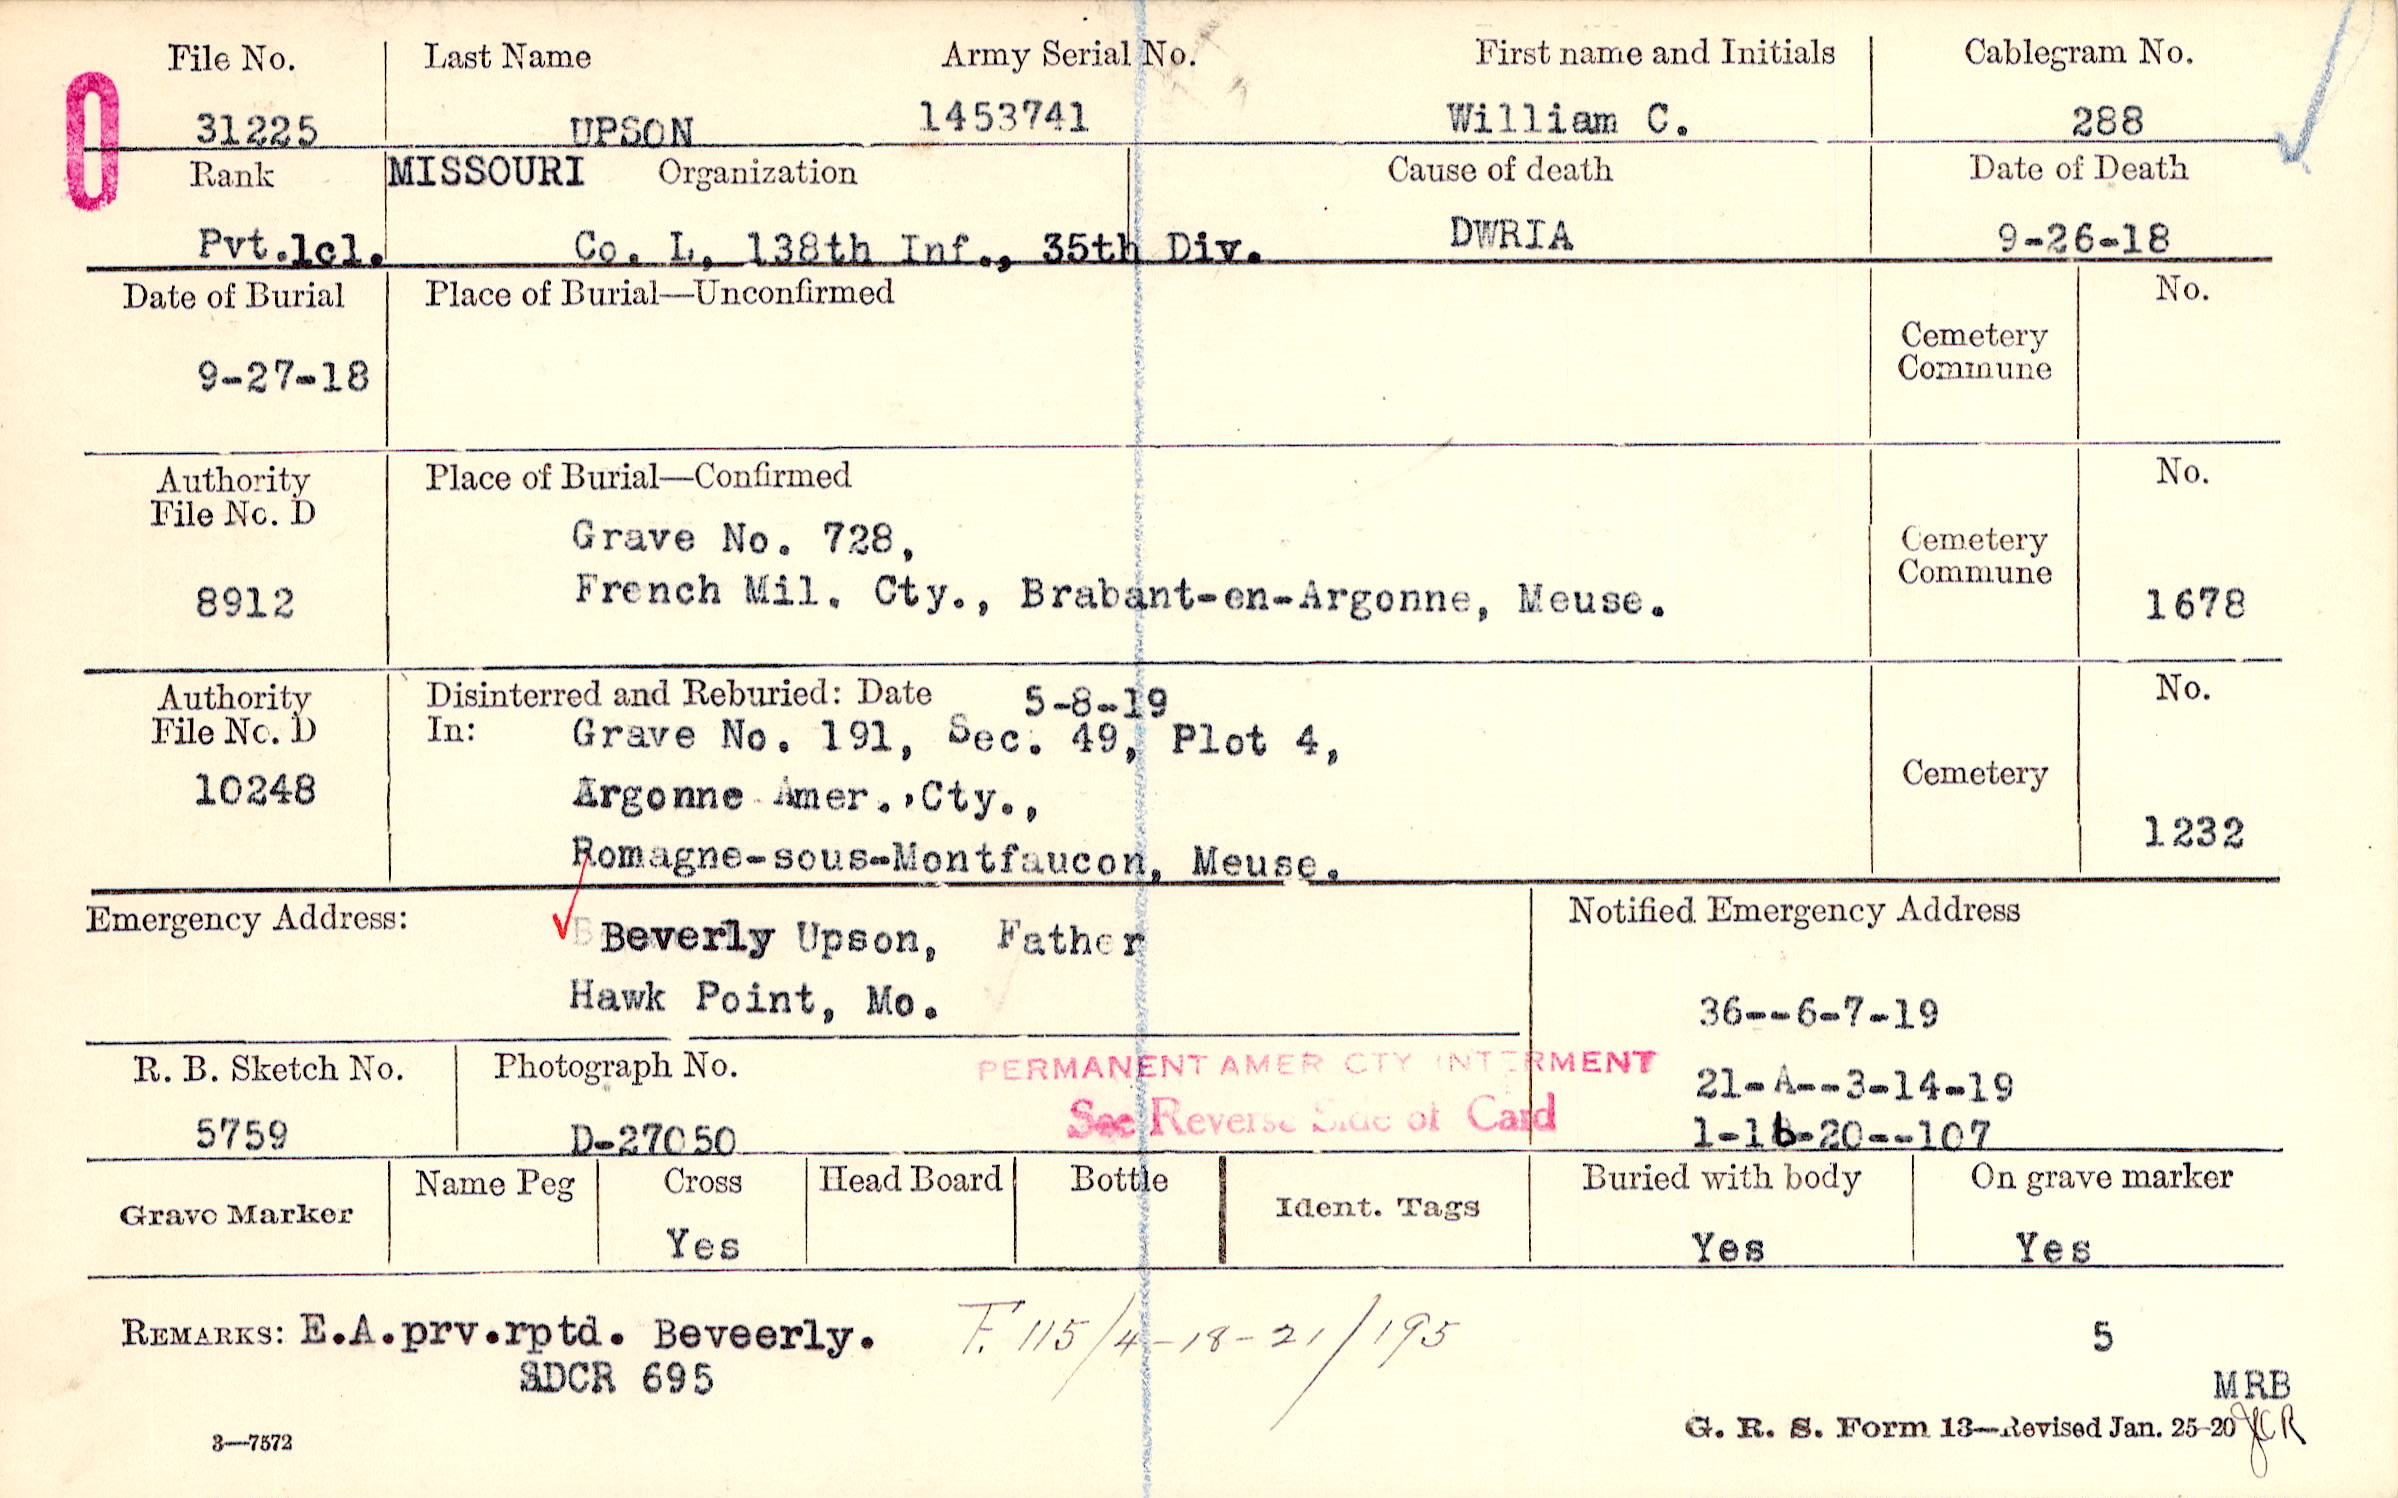 File No. Last Name Army Serial No. First name and Initials Cablegram No.
31225 UPSON 1453741 William C. 288
Rank MISSOURI Organization Cause of death Date of Death
Pvt.lcl. Co. L, 138th Inf., 35th Div. DWRIA 9-26-18
Date of Burial Place of Burial—Unconfirmed No.
Cemetery
Commune
9-27-18
Authority Place of Burial—Confirmed No.
File No. D
Grave No. 728,
Cemetery
Commune
8912 French Mil. Cty., Brabant-en-Argonne, Meuse. 1678
Authority Disinterred and Reburied: Date 5-8-19 No.
File No. D In: Grave No. 191, Sec. 49, Plot 4,
10248 Argonne Amer. Cty., Cemetery
Romagne-sous-Montfaucon, Meuse. 1232
Emergency Address: Beverly Upson, Father Notified Emergency Address
Hawk Point, Mo. 36--6-7-19
R. B. Sketch No. Photograph No. PERMANENT AMER CTY INTERMENT 21-A--3-14-19
5759 D-27050 See Reverse Side of Card 1-16-20--107
Grave Marker Name Peg Cross Head Board Bottle Ident. Tags Buried with body On grave marker
Yes Yes Yes
REMARKS: E.A.prv.rptd. Beveerly. F. 115/4-18-21/195 5
SDCR 695 MRB
3—7572 G. R. S. Form 13—Revised Jan. 25-20 JCR